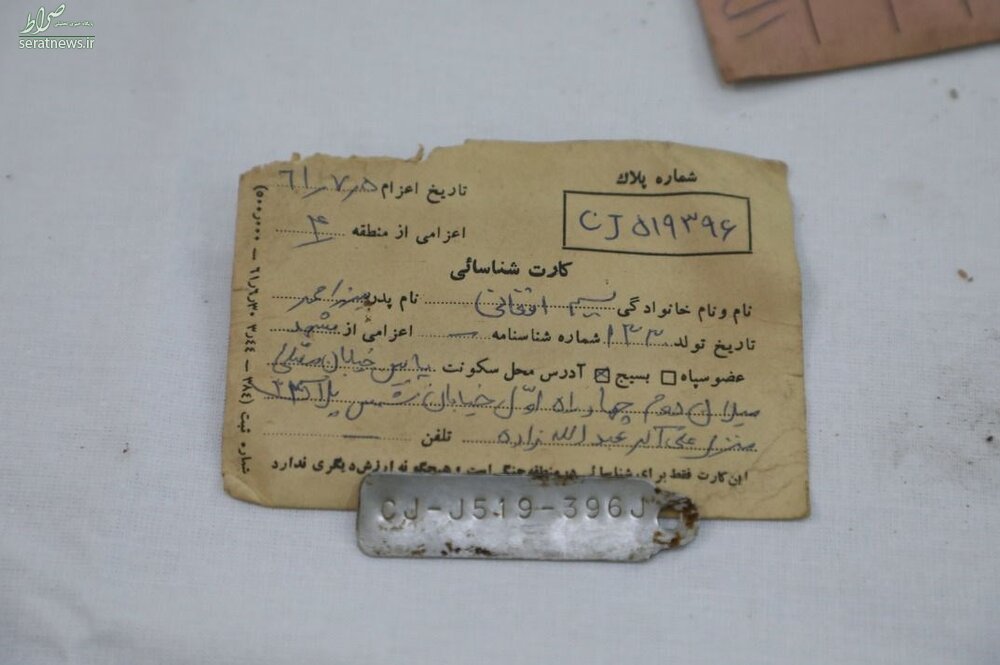 صراط
پایگاه خبری تحلیلی
seratnews.ir
شماره پلاک
CJ ۵۱۹۳۹۶
تاریخ اعزام ۶۱٫۷٫۵
اعزامی از منطقه ۴
کارت شناسائی
نام و نام خانوادگی نسیم افغانی نام پدر احمد
تاریخ تولد ۱۳۳ شماره شناسنامه — اعزامی از مشهد
عضو سپاه بسیج آدرس محل سکونت خیابان
میلان دوم چهار راه اول خیابان شمس پلاک
منزل علی اکبر عبدالله زاده تلفن —
این کارت فقط برای شناسائی در منطقه جنگی است و هیچگونه ارزش دیگری ندارد
شماره ثبت (۳۸۴ — ۳٫۴۴ ۶۱٫۶٫۳۰ — ۵۰۰٫۰۰۰)
CJ-J519-396J